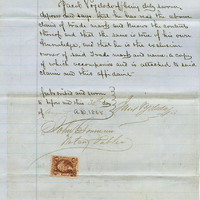 being duly sworn,
deposes and says that he has read the above
claim of trade mark and knows the contents
thereof, and that the same is true of his own
knowledge, and that he is the exclusive
owner of said Trade mark and name, a copy
of which accompanies and is attached to said
claim and this affidavit.
Subscribed and sworn
to before me this
A.D. 18
Notary Public